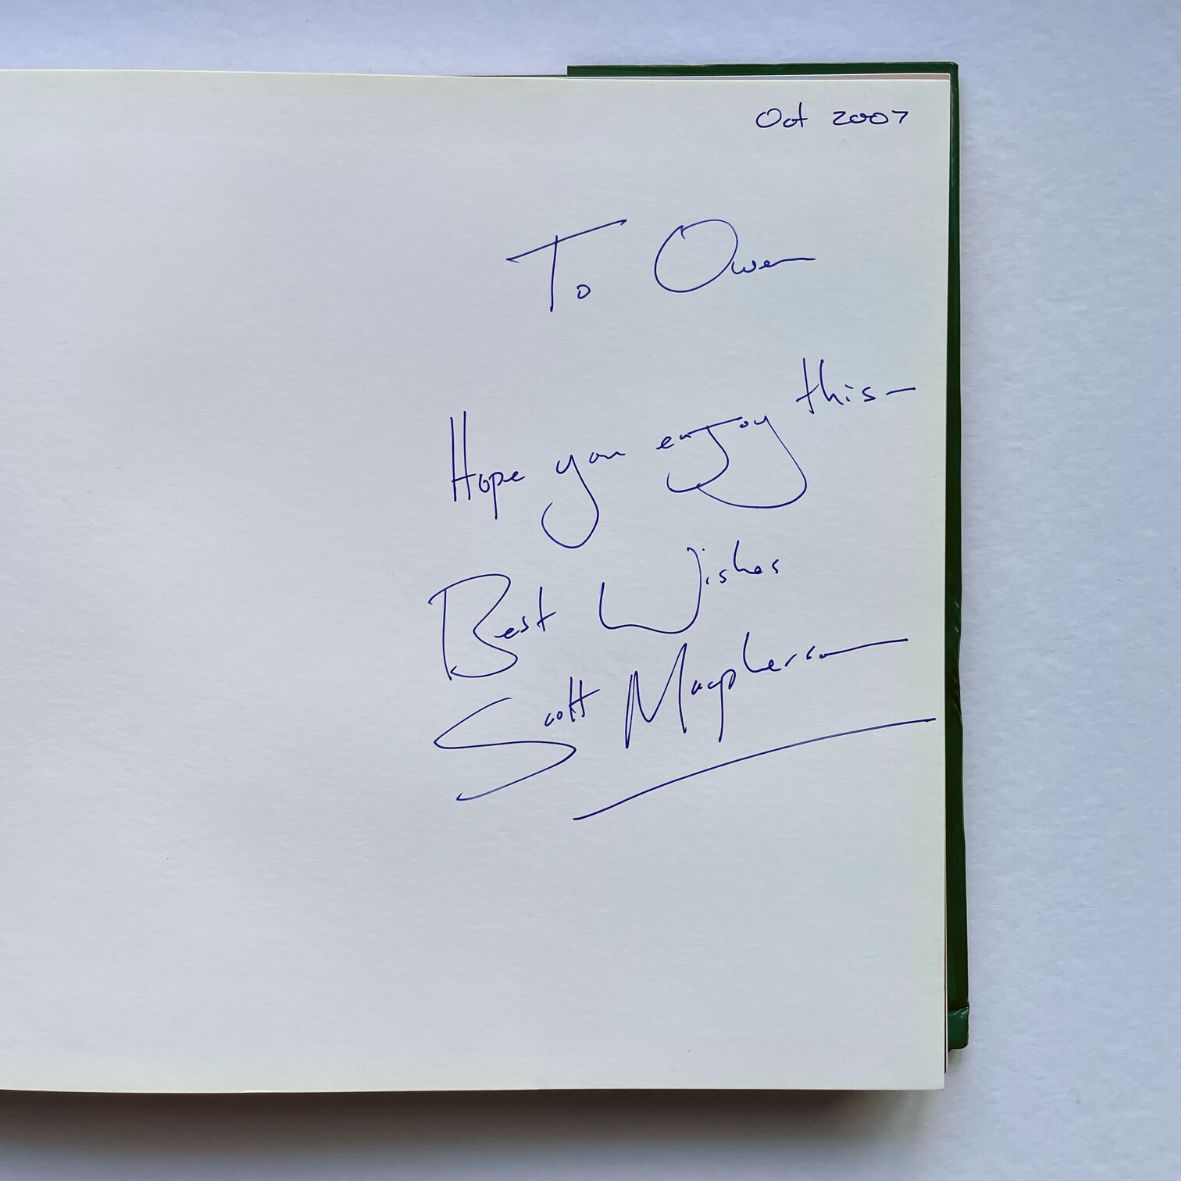 Oct 2007
To Owen
Hope you enjoy this–
Best Wishes
Scott Macpherson